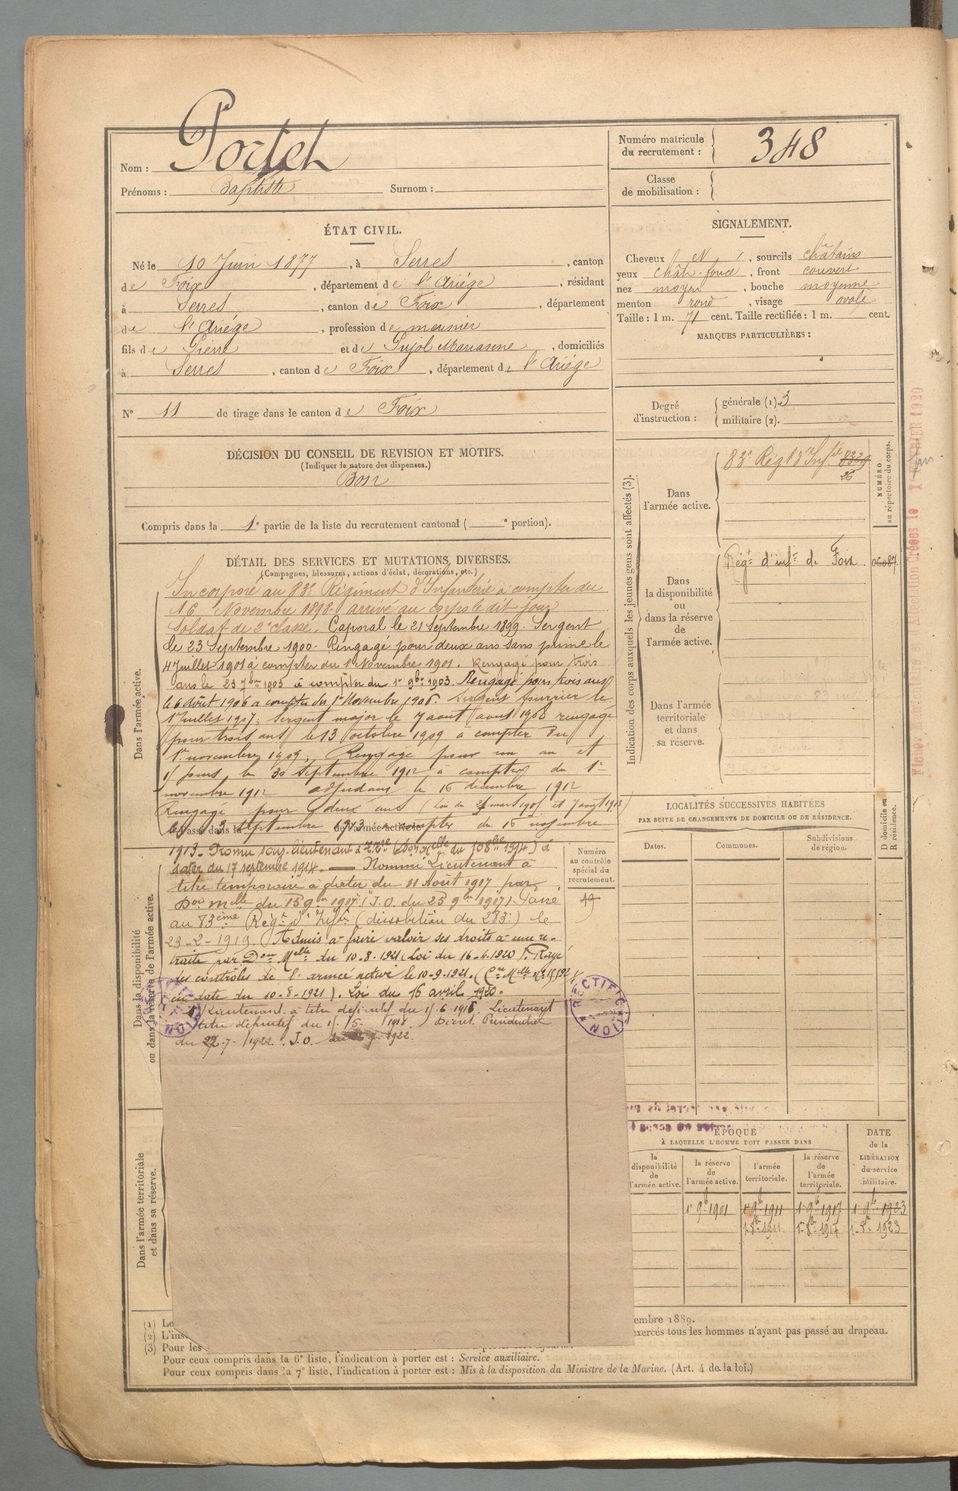 Nom : Portet
Prénoms : Baptiste Surnom :
Numéro matricule du recrutement : 348
Classe de mobilisation :
ÉTAT CIVIL.
Né le 10 Juin 1877, à Serres, canton
de Foix, département de l'Ariége, résidant
à Serres, canton de Foix, département
de l'Ariége, profession de meunier
fils de Pierre et de Pujol Marianne, domiciliés
à Serres, canton de Foix, département de l'Ariége
N° 11 de tirage dans le canton de Foix
SIGNALEMENT.
Cheveux et, sourcils châtains
yeux chât. foncé, front couvert
nez moyen, bouche moyenne
menton rond, visage ovale
Taille : 1 m. 71 cent. Taille rectifiée : 1 m. cent.
MARQUES PARTICULIÈRES :
Degré d'instruction : générale (1). 3
militaire (2).
DÉCISION DU CONSEIL DE REVISION ET MOTIFS.
(Indiquer la nature des dispenses.)
Bon
Compris dans la 1e partie de la liste du recrutement cantonal ( e portion).
DÉTAIL DES SERVICES ET MUTATIONS DIVERSES.
(Campagnes, blessures, actions d'éclat, décorations, etc.)
Dans l'armée active.
Incorporé au 83e Régiment d'Infanterie à compter du
16 Novembre 1898. arrivé au corps le dit jour
Soldat de 2e classe. Caporal le 21 Septembre 1899. Sergent
le 23 Septembre 1900. Rengagé pour deux ans sans prime le
4 Juillet 1901 à compter du 1 Novembre 1901. Rengagé pour trois
ans le 23 7bre 1903 à compter du 1er 9bre 1903. Rengagé pour trois ans
le 6 Août 1906 à compter du 1er Novembre 1906. Sergent fourrier le
1 Juillet 1907. Sergent major le 7 août 1908 rengagé
pour trois ans le 13 octobre 1909 à compter du
1er novembre 1909. Rengagé pour un an et
15 jours le 30 septembre 1912 à compter du 1er
novembre 1912 adjudant le 16 décembre 1912
Rengagé pour deux ans
le 3 septembre 1913 à compter du 16 novembre
1913. Promu sous-lieutenant à
dater du 17 septembre 1914. Nommé Lieutenant à
titre temporaire à dater du 11 Août 1917 par
Don mlle du 15 9bre 1917 (J.O. du 23 9bre 1917) Passé
au 83ème Régt d'Inftie (dissolution du 283e) le
23-2-1919. Admis à faire valoir ses droits à une re-
traite par Don Melle du 10-8-1921 (Loi du 16-4-1920). Rayé
des contrôles de l'armée active le 10-9-1921.
en date du 10-8-1921). Loi du 16 avril 1920.
Lieutenant à titre définitif du 1/6.1916. Lieutenant
titre définitif du 1/5 1918
du 22-7-1922. J.O. 1922.
Dans la disponibilité ou dans la réserve de l'armée active.
Dans l'armée territoriale et dans sa réserve.
Numéro au contrôle spécial du recrutement.
RECTIFICATION
Indication des corps auxquels les jeunes gens sont affectés (3).
Dans l'armée active.
83e Régt d'Infie
Dans la disponibilité ou dans la réserve de l'armée active.
Régt d'infie de Foix
Dans l'armée territoriale et dans sa réserve.
NUMÉRO au répertoire du corps.
LOCALITÉS SUCCESSIVES HABITÉES
PAR SUITE DE CHANGEMENTS DE DOMICILE OU DE RÉSIDENCE.
Dates. Communes. Subdivisions de région. D domicile ou R résidence.
ÉPOQUE
À LAQUELLE L'HOMME DOIT PASSER DANS
la disponibilité de l'armée active. la réserve de l'armée active. l'armée territoriale. la réserve de l'armée territoriale.
DATE de la LIBÉRATION du service militaire.
1er 9b 1901 1er 9b 1911 1er 9b 1917 1er 9b 1923
1er 8b 1911 1er 8b 1917 1er 8b 1923
(1) Le
embre 1889.
(2) L'ins
exercés tous les hommes n'ayant pas passé au drapeau.
(3) Pour les
Pour ceux compris dans la 6e liste, l'indication à porter est : Service auxiliaire.
Pour ceux compris dans la 7e liste, l'indication à porter est : Mis à la disposition du Ministre de la Marine. (Art. 4 de la loi.)